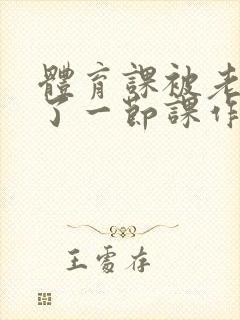 體育課被老
了一節課作
王雪存